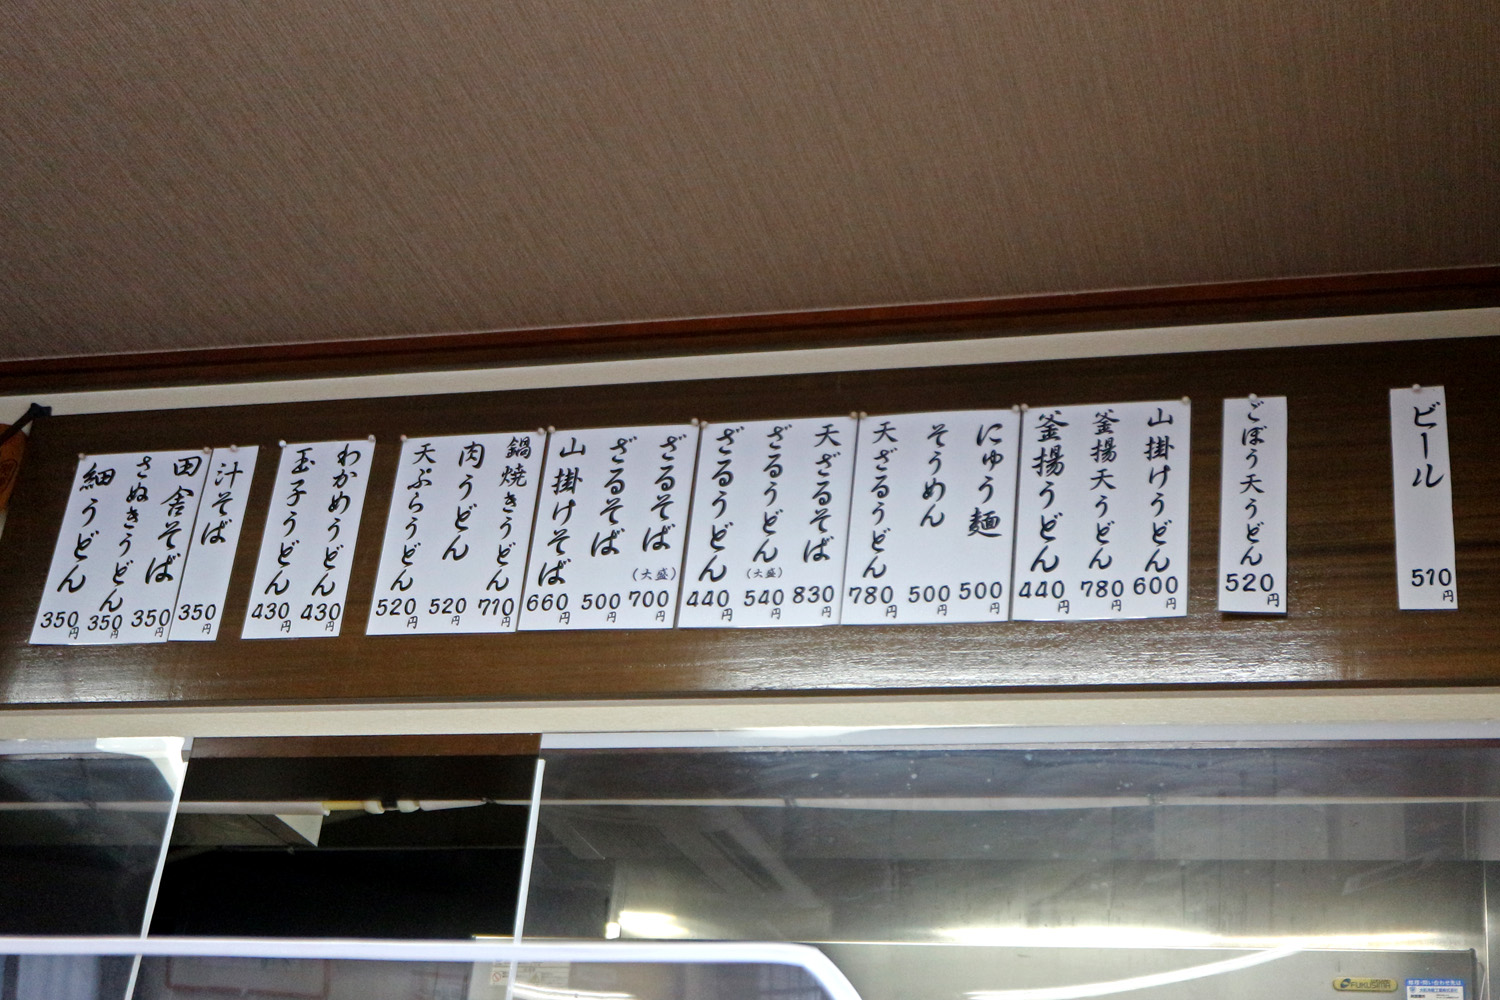 ビール 510円
ごぼう天うどん 520円
山掛けうどん 600円
釜揚天うどん 780円
釜揚うどん 440円
にゅう麺 500円
そうめん 500円
天ざるうどん 780円
天ざるそば 830円
ざるうどん (大盛) 540円
ざるうどん 440円
ざるそば (大盛) 700円
ざるそば 500円
山掛けそば 660円
鍋焼きうどん 710円
肉うどん 520円
天ぷらうどん 520円
わかめうどん 430円
玉子うどん 430円
汁そば 350円
田舎そば 350円
さぬきうどん 350円
細うどん 350円
FUKUSIMA